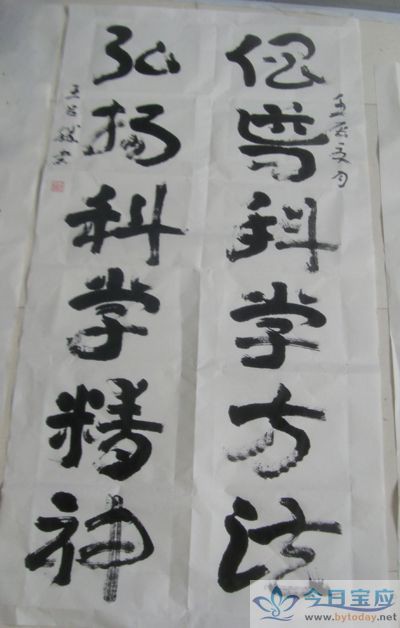 倡普科学方法
弘扬科学精神
今日宝应
www.bytoday.net